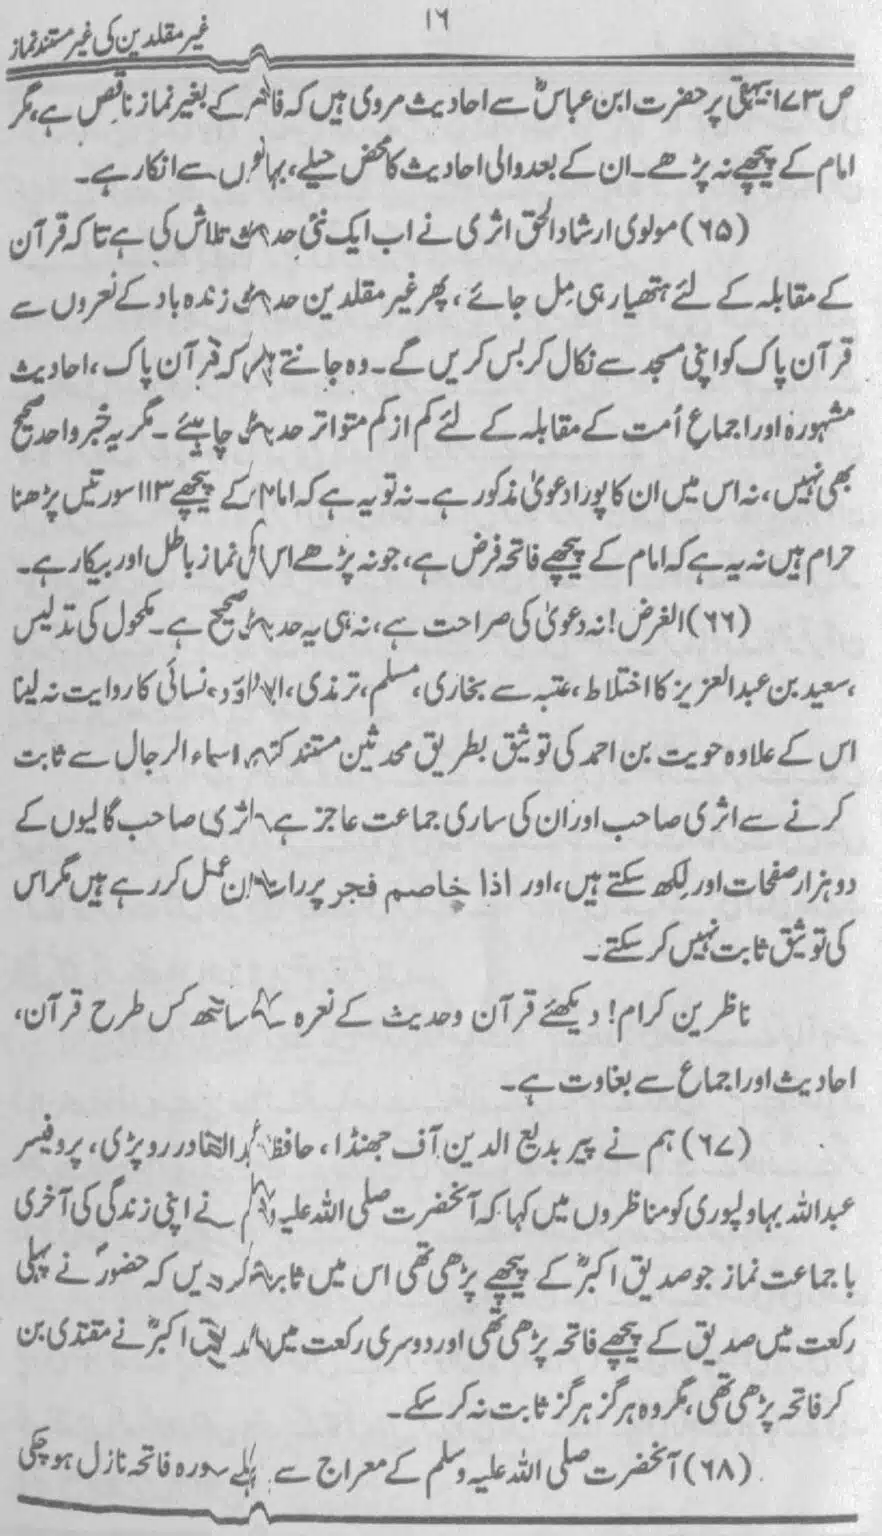 ۱۶
غیر مقلدین کی غیر مستند نماز
ص ۱۷۳ بیہقی پر حضرت ابن عباسؓ سے احادیث مروی ہیں کہ فاتحہ کے بغیر نماز ناقص ہے، مگر
امام کے پیچھے نہ پڑھے۔ ان کے بعد والی احادیث کا محض حیلے، بہانوں سے انکار ہے۔
(۶۵) مولوی ارشاد الحق اثری نے اب ایک نئی حدیث تلاش کی ہے تاکہ قرآن
کے مقابلہ کے لئے ہتھیار ہی مِل جائے، پھر غیر مقلدین حدیث زندہ باد کے نعروں سے
قرآن پاک کو اپنی مسجد سے نکال کر بس کریں گے۔ وہ جانتے ہیں کہ قرآن پاک، احادیث
مشہورہ اور اجماعِ اُمت کے مقابلہ کے لئے کم از کم متواتر حدیث چاہیئے۔ مگر یہ خبر واحد صحیح
بھی نہیں، نہ اس میں ان کا پورا دعویٰ مذکور ہے۔ نہ تو یہ ہے کہ امام کے پیچھے ۱۱۳ سورتیں پڑھنا
حرام ہیں نہ یہ ہے کہ امام کے پیچھے فاتحہ فرض ہے، جو نہ پڑھے اس کی نماز باطل اور بیکار ہے۔
(۶۶) الغرض! نہ دعویٰ کی صراحت ہے، نہ ہی یہ حدیث صحیح ہے۔ مکحول کی تدلیس
، سعید بن عبدالعزیز کا اختلاط، عتبہ سے بخاری، مسلم، ترمذی، ابوداؤد، نسائی کا روایت نہ لینا
اس کے علاوہ حویت بن احمد کی توثیق بطریق محدثین مستند کتب اسماء الرجال سے ثابت
کرنے سے اثری صاحب اور ان کی ساری جماعت عاجز ہے اثری صاحب گالیوں کے
دو ہزار صفحات اور لکھ سکتے ہیں، اور اذا خاصم فجر پر رات دن عمل کر رہے ہیں مگر اس
کی توثیق ثابت نہیں کر سکتے۔
ناظرین کرام! دیکھئے قرآن وحدیث کے نعرہ کے ساتھ کس طرح قرآن،
احادیث اور اجماع سے بغاوت ہے۔
(۶۷) ہم نے پیر بدیع الدین آف جھنڈا، حافظ عبدالقادر روپڑی، پروفیسر
عبداللہ بہاولپوری کو مناظروں میں کہا کہ آنحضرت صلی اللہ علیہ وسلم نے اپنی زندگی کی آخری
باجماعت نماز جو صدیق اکبرؓ کے پیچھے پڑھی تھی اس میں ثابت کر دیں کہ حضورؐ نے پہلی
رکعت میں صدیق کے پیچھے فاتحہ پڑھی تھی اور دوسری رکعت میں صدیق اکبرؓ نے مقتدی بن
کر فاتحہ پڑھی تھی، مگر وہ ہرگز ہرگز ثابت نہ کر سکے۔
(۶۸) آنحضرت صلی اللہ علیہ وسلم کے معراج سے پہلے سورہ فاتحہ نازل ہو چکی